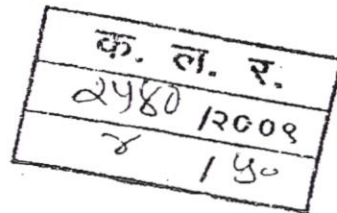 क. ल. र.
२५४० /२००९
४ / ५०